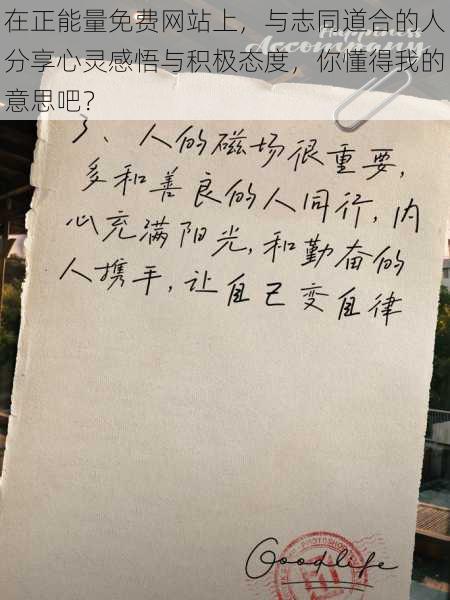 在正能量免费网站上，与志同道合的人
分享心灵感悟与积极态度，你懂得我的
意思吧？
Happiness
Accompany
3、人的磁场很重要，
多和善良的人同行，内
心充满阳光，和勤奋的
人携手，让自己变自律
Goodlife